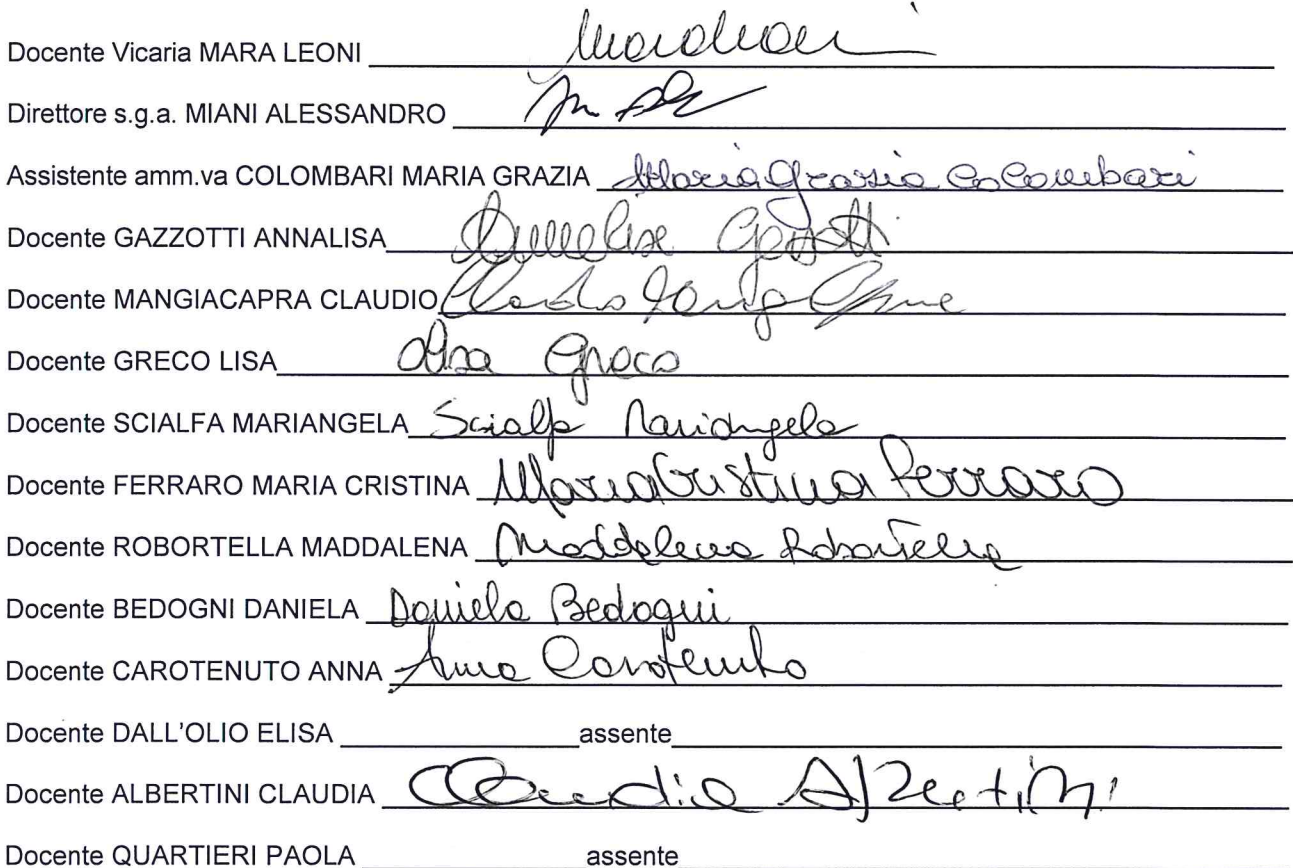 Docente Vicaria MARA LEONI
Direttore s.g.a. MIANI ALESSANDRO
Assistente amm.va COLOMBARI MARIA GRAZIA Maria Grazia Colombari
Docente GAZZOTTI ANNALISA Annalisa Gazzotti
Docente MANGIACAPRA CLAUDIO Claudio
Docente GRECO LISA Lisa Greco
Docente SCIALFA MARIANGELA Scialfa Mariangela
Docente FERRARO MARIA CRISTINA Maria Cristina Ferraro
Docente ROBORTELLA MADDALENA Maddalena Robortella
Docente BEDOGNI DANIELA Daniela Bedogni
Docente CAROTENUTO ANNA Anna Carotenuto
Docente DALL'OLIO ELISA assente
Docente ALBERTINI CLAUDIA Claudia Albertini
Docente QUARTIERI PAOLA assente